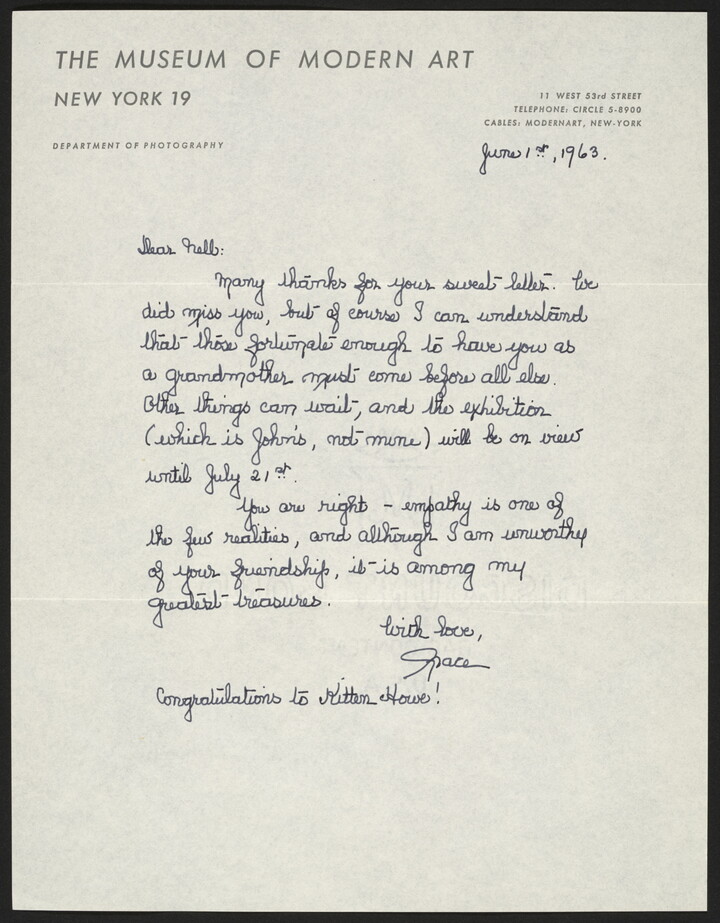 THE MUSEUM OF MODERN ART
NEW YORK 19
11 WEST 53rd STREET
TELEPHONE: CIRCLE 5-8900
CABLES: MODERNART, NEW-YORK
DEPARTMENT OF PHOTOGRAPHY
June 1st, 1963.
Dear Nell:
Many thanks for your sweet letter. We
did miss you, but of course I can understand
that those fortunate enough to have you as
a grandmother must come before all else.
Other things can wait, and the exhibition
(which is John's, not mine) will be on view
until July 21st.
You are right - empathy is one of
the few realities, and although I am unworthy
of your friendship, it is among my
greatest treasures.
With love,
Grace
Congratulations to Kitten Howe!